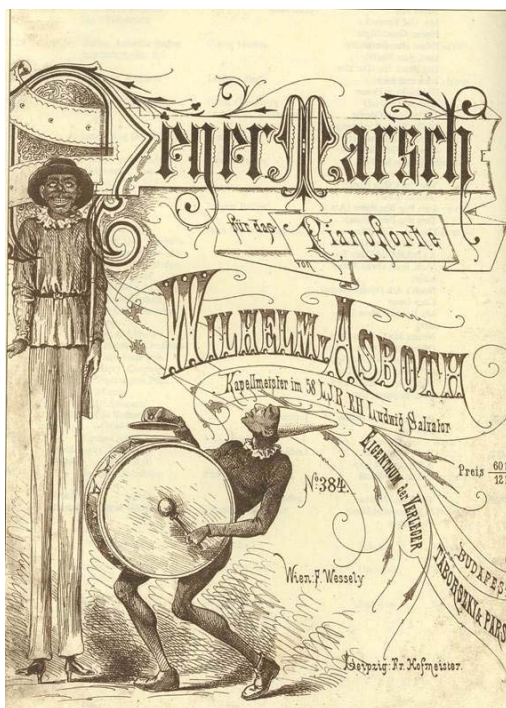 Neger Marsch
für das Pianoforte
von
WILHELM ASBOTH
Kapellmeister im 58 L.J.R. E.H. Ludwig Salvator
EIGENTHUM der VERLEGER
Preis 60
12
No 384.
BUDAPES
TÁBORSZKI & PARS
Wien: F. Wessely
Leipzig: Fr. Hofmeister.